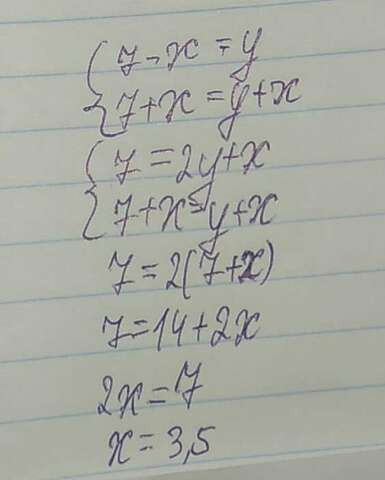 7-x=y
7+x=y+x
7=2y+x
7+x=y+x
7=2(7+x)
7=14+2x
2x=7
x=3,5